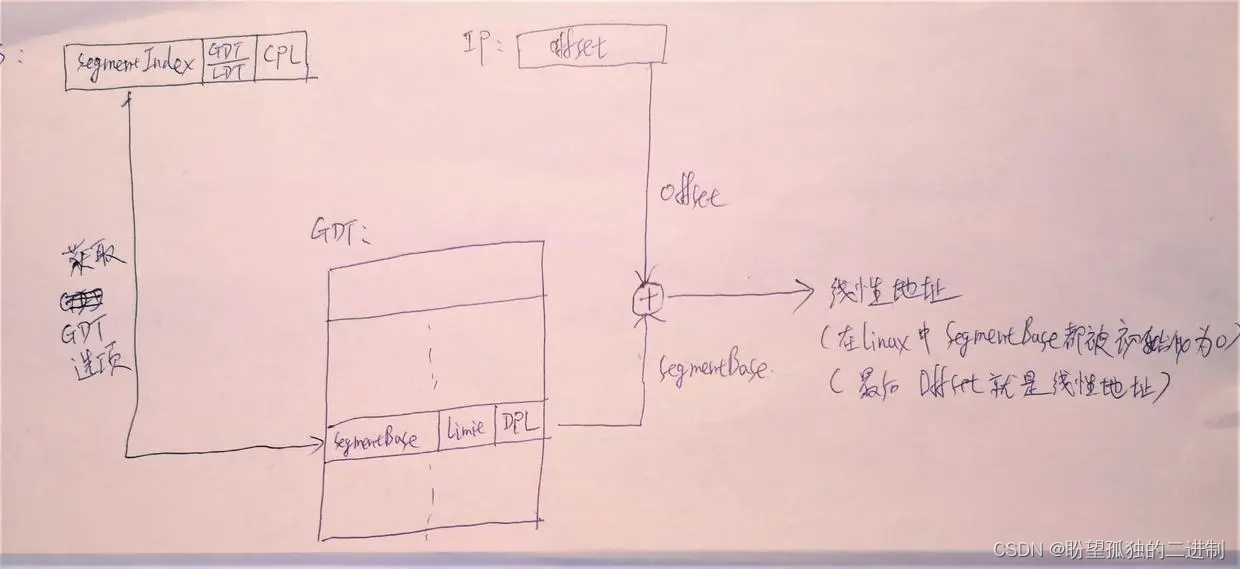 S:
segmentIndex
GDT
LDT
CPL
IP:
offset
offset
获取
GDT
选项
GDT:
segmentBase
Limit
DPL
segmentBase.
线性地址
(在linux中 segmentBase都被初始化为0)
(最后 Offset就是线性地址)
CSDN @盼望孤独的二进制